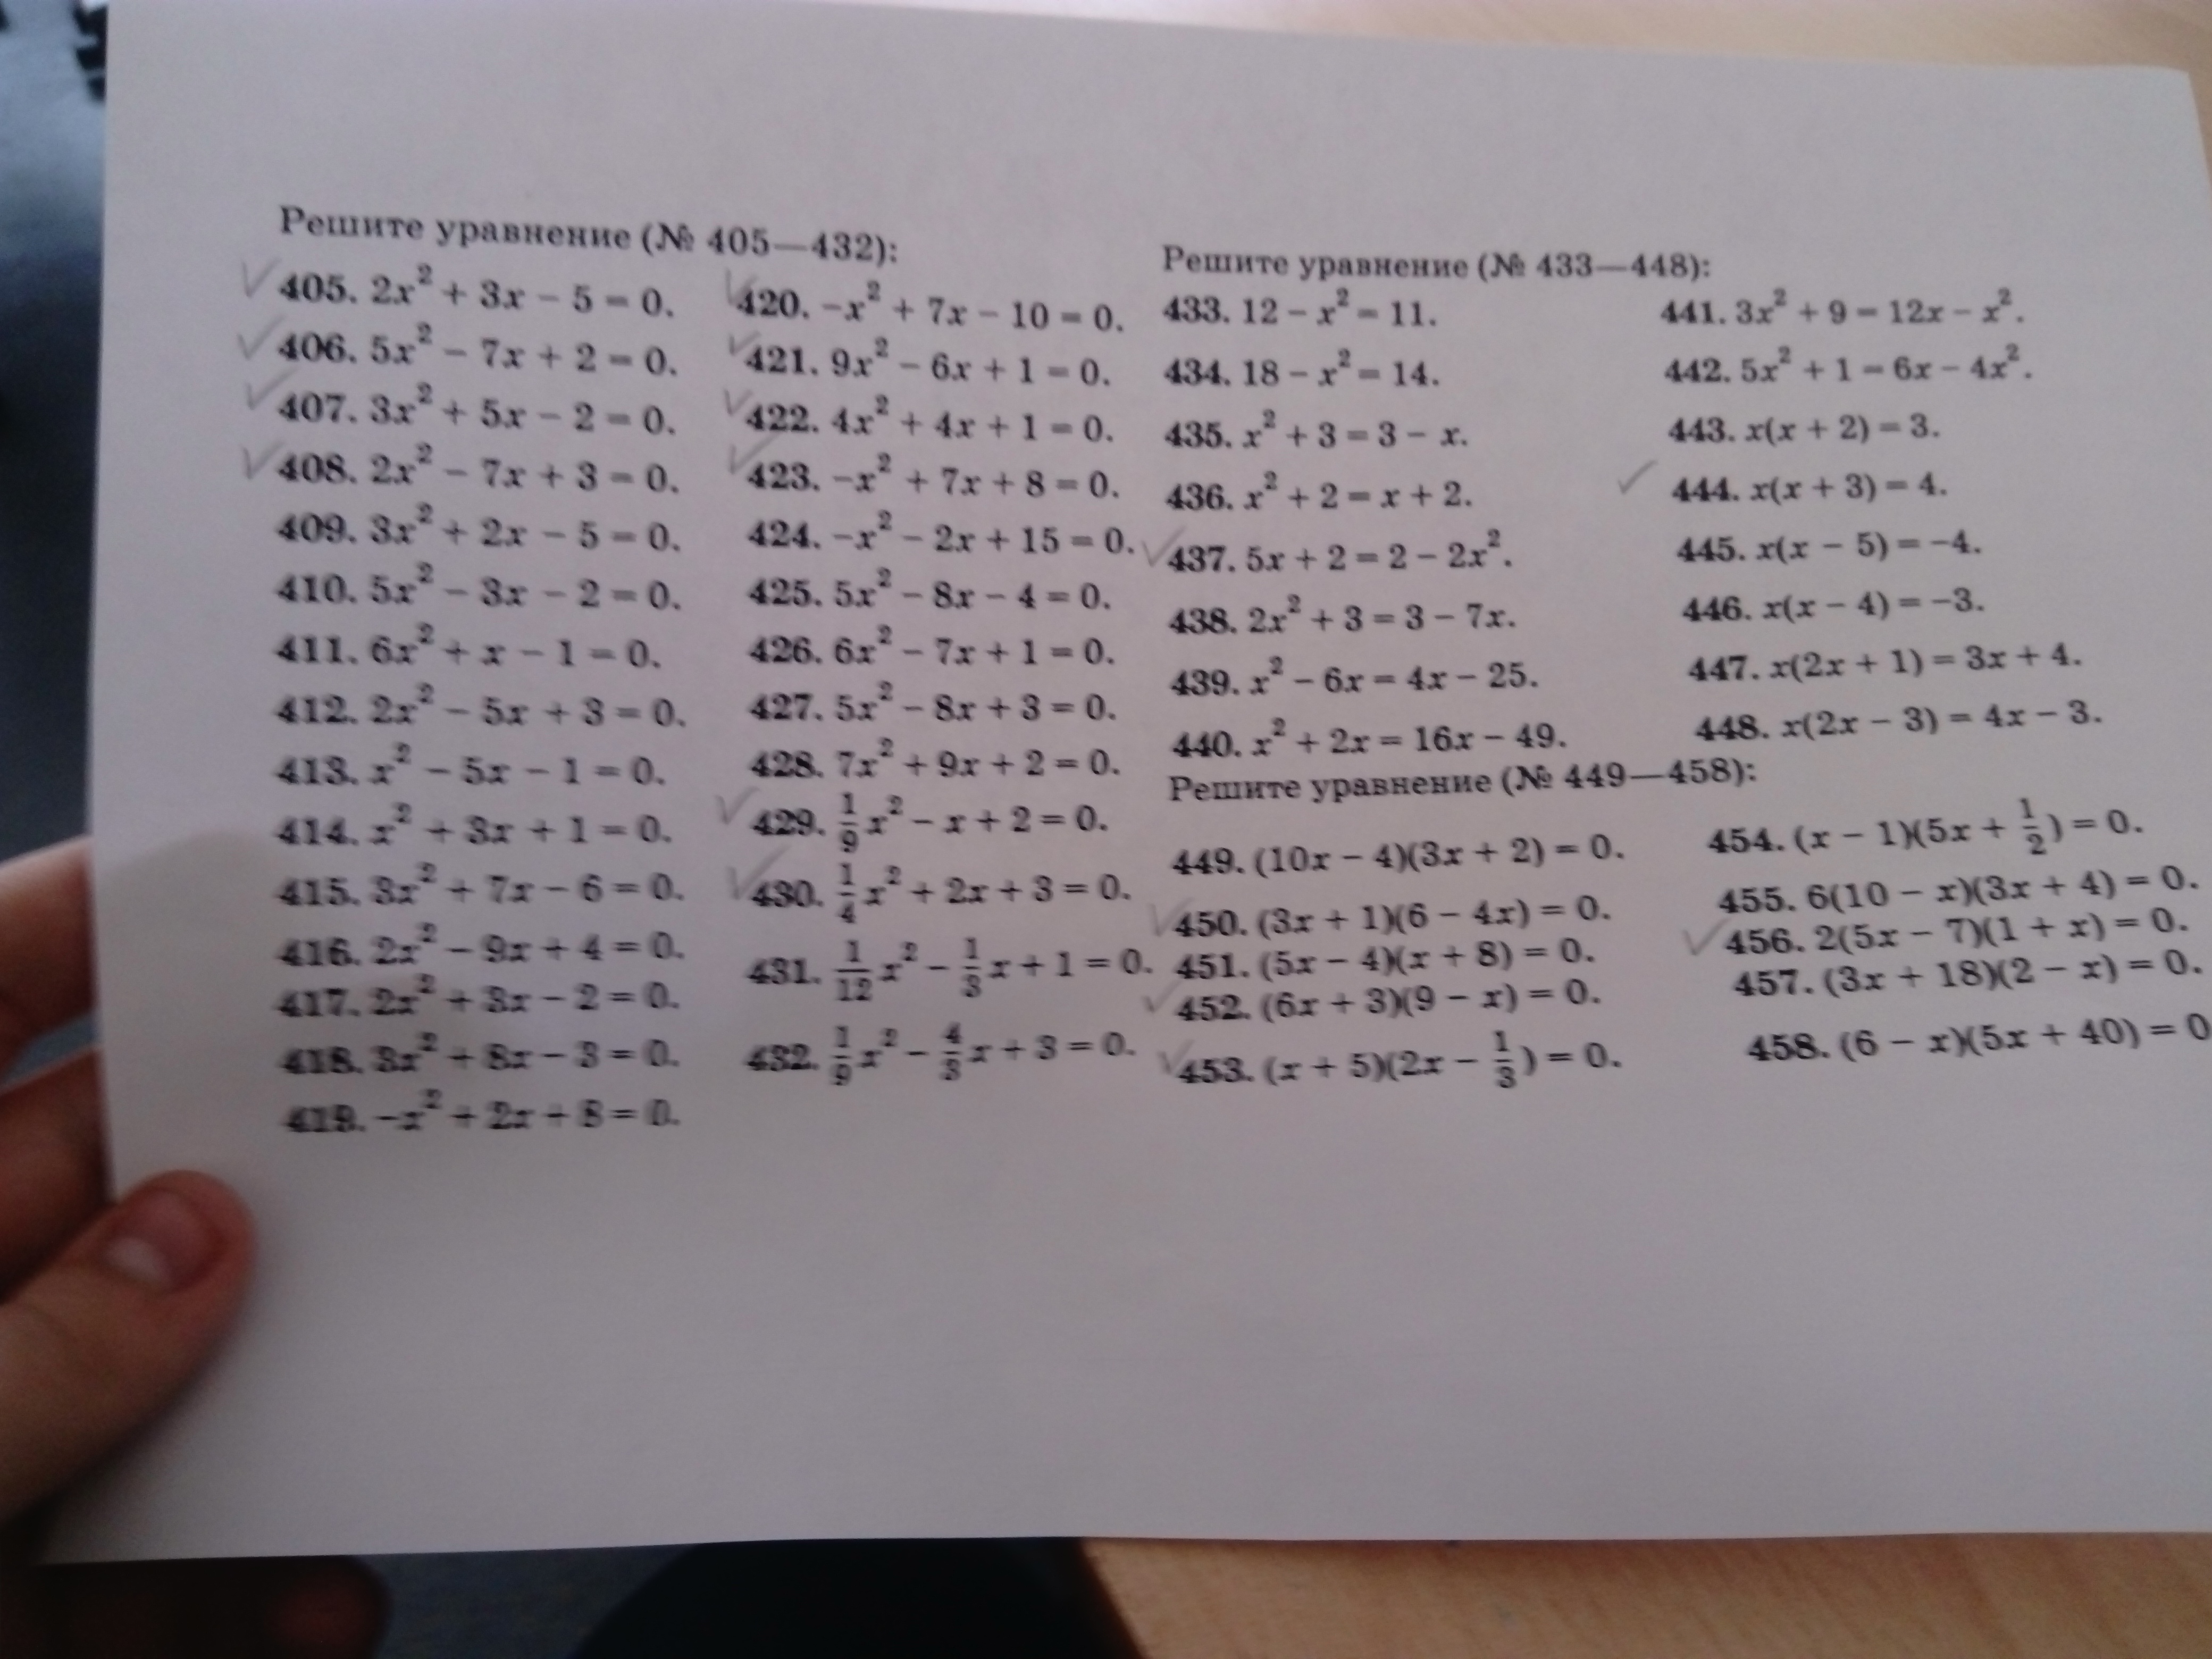 Решите уравнение (№ 405—432):
405. 2x² + 3x − 5 = 0.
406. 5x² − 7x + 2 = 0.
407. 3x² + 5x − 2 = 0.
408. 2x² − 7x + 3 = 0.
409. 3x² + 2x − 5 = 0.
410. 5x² − 3x − 2 = 0.
411. 6x² + x − 1 = 0.
412. 2x² − 5x + 3 = 0.
413. x² − 5x − 1 = 0.
414. x² + 3x + 1 = 0.
415. 3x² + 7x − 6 = 0.
416. 2x² − 9x + 4 = 0.
417. 2x² + 3x − 2 = 0.
418. 3x² + 8x − 3 = 0.
419. −x² + 2x + 8 = 0.
420. −x² + 7x − 10 = 0.
421. 9x² − 6x + 1 = 0.
422. 4x² + 4x + 1 = 0.
423. −x² + 7x + 8 = 0.
424. −x² − 2x + 15 = 0.
425. 5x² − 8x − 4 = 0.
426. 6x² − 7x + 1 = 0.
427. 5x² − 8x + 3 = 0.
428. 7x² + 9x + 2 = 0.
429. 1/9 x² − x + 2 = 0.
430. 1/4 x² + 2x + 3 = 0.
431. 1/12 x² − 1/3 x + 1 = 0.
432. 1/9 x² − 4/3 x + 3 = 0.
Решите уравнение (№ 433—448):
433. 12 − x² = 11.
434. 18 − x² = 14.
435. x² + 3 = 3 − x.
436. x² + 2 = x + 2.
437. 5x + 2 = 2 − 2x².
438. 2x² + 3 = 3 − 7x.
439. x² − 6x = 4x − 25.
440. x² + 2x = 16x − 49.
441. 3x² + 9 = 12x − x².
442. 5x² + 1 = 6x − 4x².
443. x(x + 2) = 3.
444. x(x + 3) = 4.
445. x(x − 5) = −4.
446. x(x − 4) = −3.
447. x(2x + 1) = 3x + 4.
448. x(2x − 3) = 4x − 3.
Решите уравнение (№ 449—458):
449. (10x − 4)(3x + 2) = 0.
450. (3x + 1)(6 − 4x) = 0.
451. (5x − 4)(x + 8) = 0.
452. (6x + 3)(9 − x) = 0.
453. (x + 5)(2x − 1/3) = 0.
454. (x − 1)(5x + 1/2) = 0.
455. 6(10 − x)(3x + 4) = 0.
456. 2(5x − 7)(1 + x) = 0.
457. (3x + 18)(2 − x) = 0.
458. (6 − x)(5x + 40) = 0